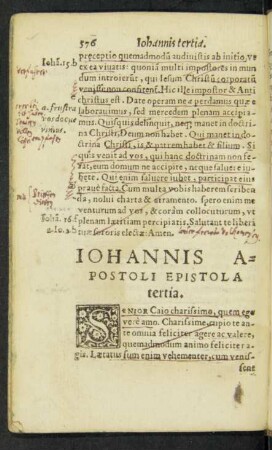 576 Iohannis tertia.
præceptio quemadmodũ audiuistis ab initio, vt
ex ea viuatis: quoniã multi impostores in mun
dum introierũt, qui Iesum Christũ corporatũ
venisse non confitẽt. Hic ille impostor & Anti
christus est. Date operam ne perdamus quæ e-
laborauimus, sed mercedem plenam accipia-
mus. Quisquis delinquit, neq; manet in doctri-
na Christi, Deum non habet. Qui manet in do-
ctrina Christi, is & patrem habet & filium. Si
quis venit ad vos, qui hanc doctrinam non fe-
rat, eum domum ne accipite, neque salutere iu-
bete: Qui enim saluere iubet, participat eius
praua facta. Cum multa vobis haberem scriben-
da, nolui charta & atramento. spero enim me
venturum ad vos, & coràm collocuturum, vt
plenam lætitiam percipiatis. Salutant te liberi
sororis electæ. Amen.
Iohã. 15. b
Iohã. 16. f
IOHANNIS A-
POSTOLI EPISTOLA
tertia.
SENIOR Caio charissimo, quem ego
verè amo. Charissime, cupio te an-
te omnia feliciter agere ac valere,
quemadmodum animo feliciter a-
gis. Lætatus sum enim vehementer, cum venis-
sent